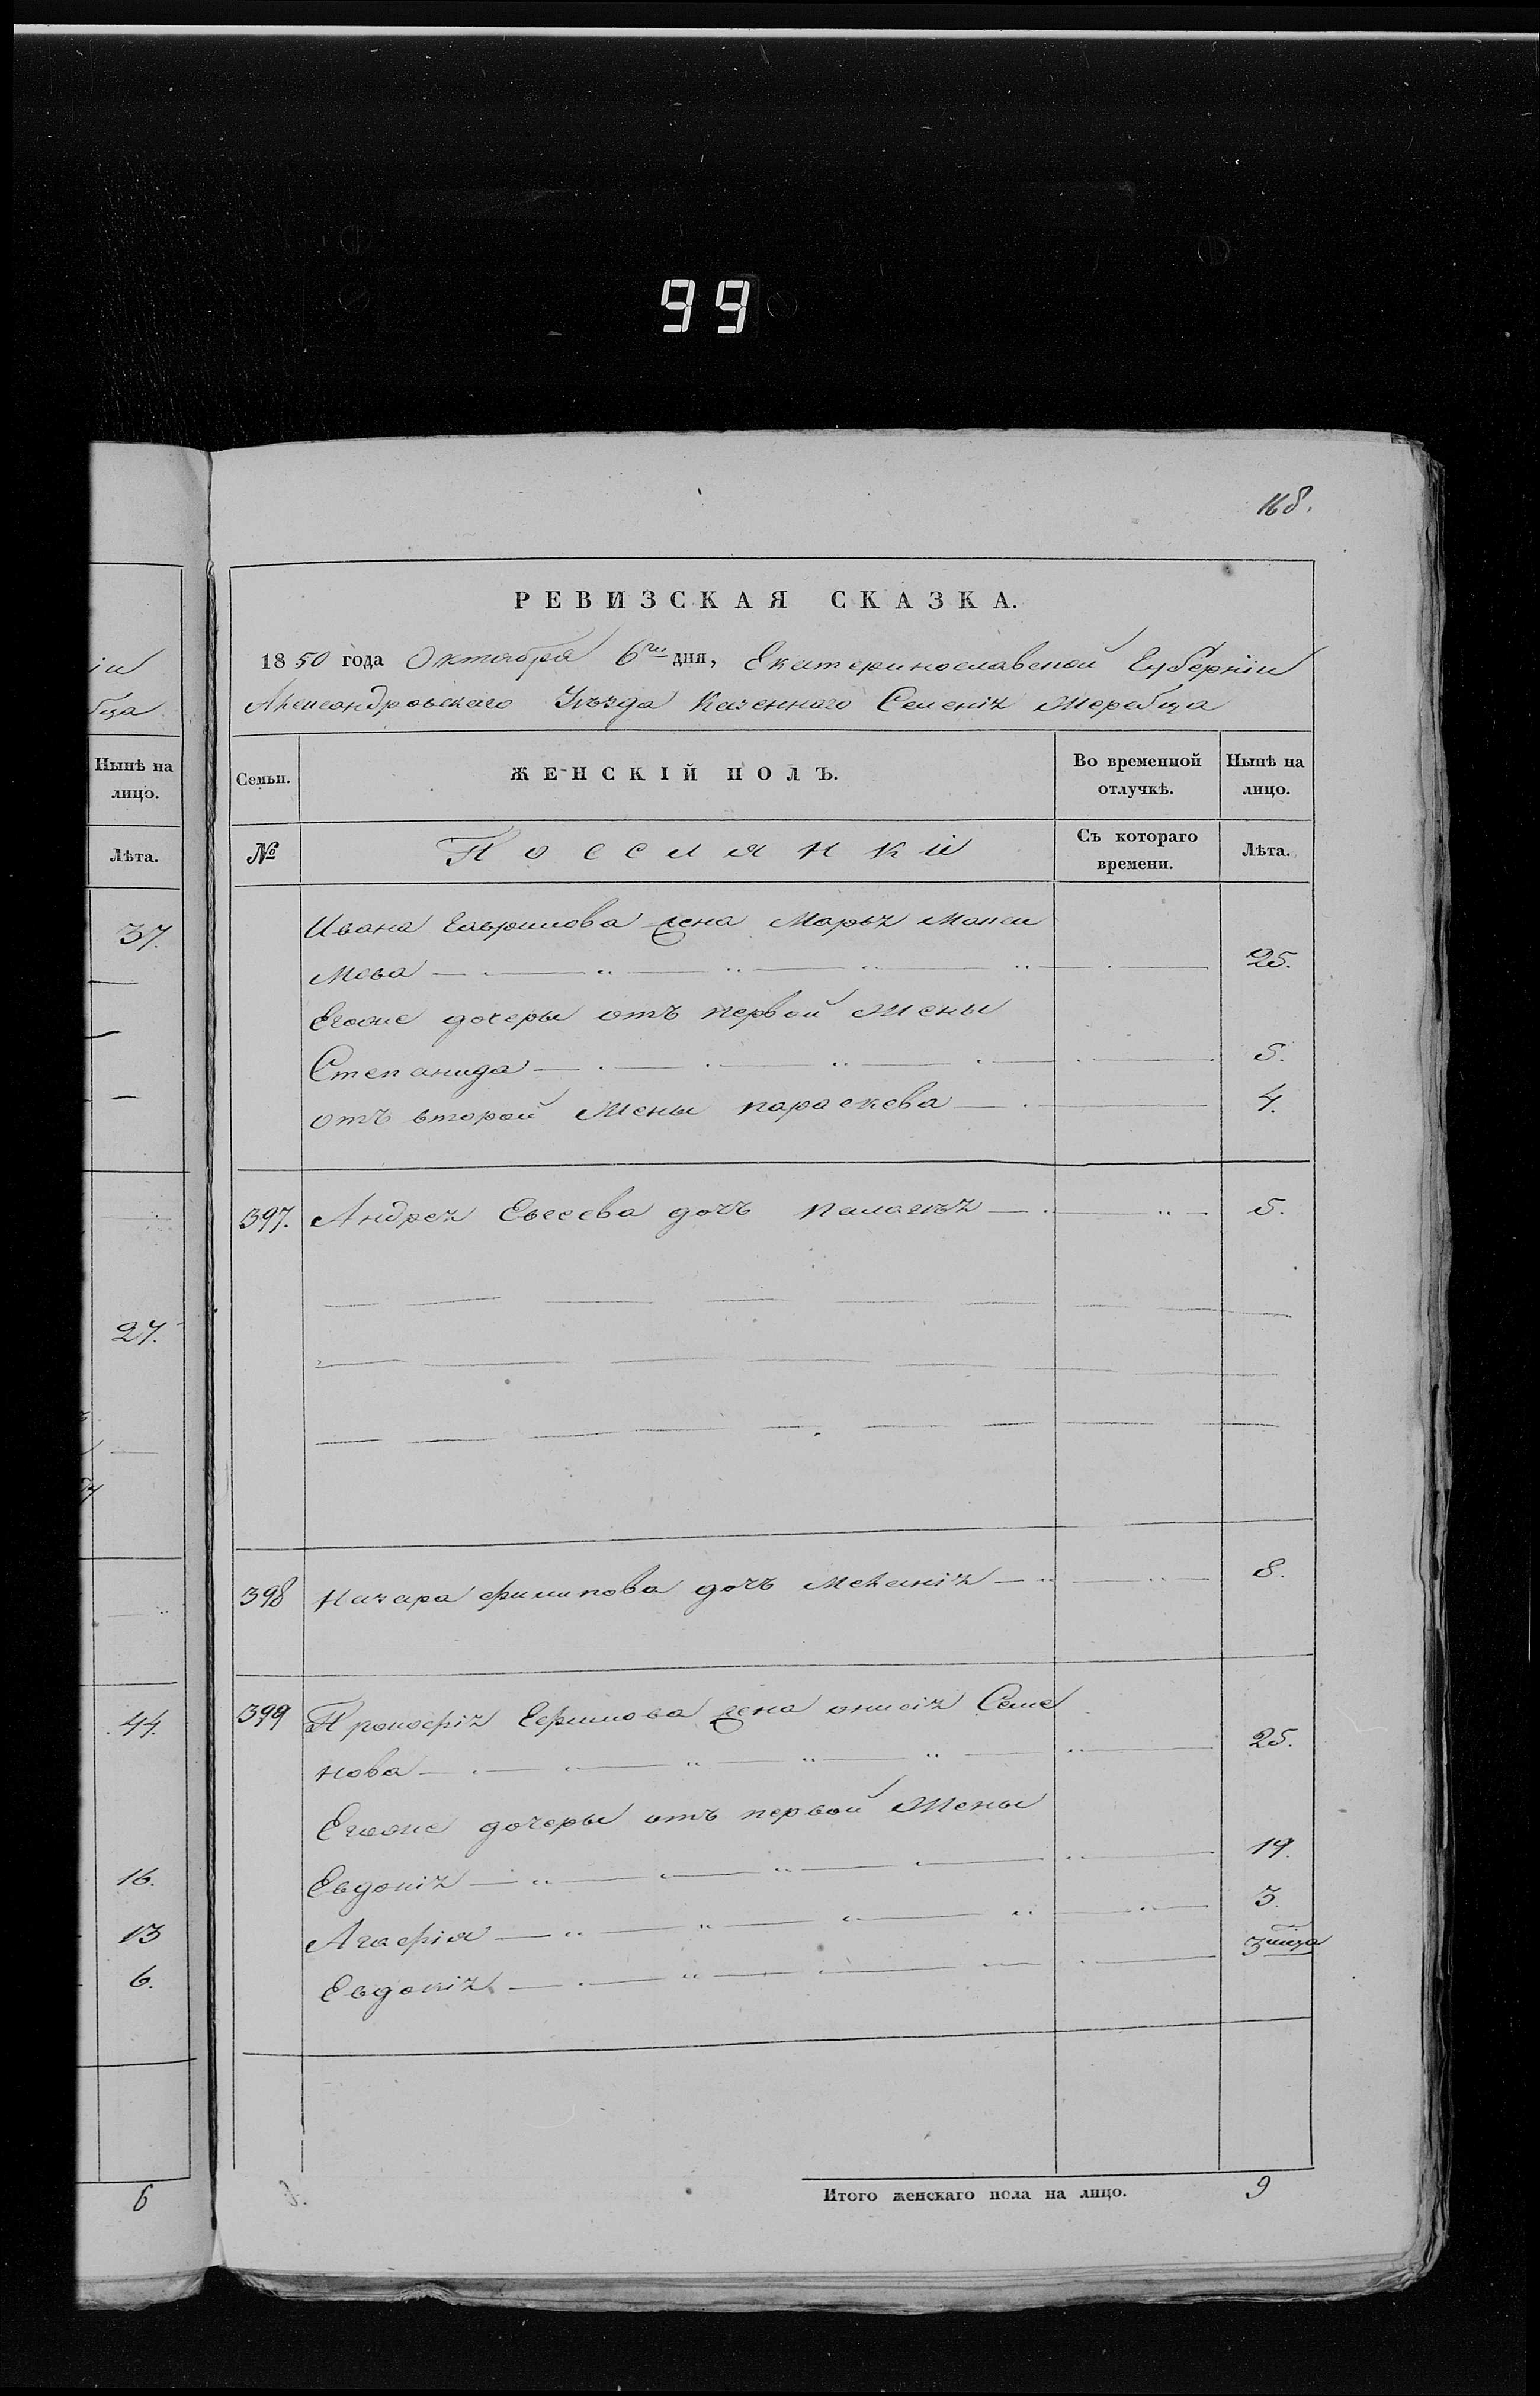 99
168.
РЕВИЗСКАЯ СКАЗКА.
1850 года Октября 6го дня, Екатеринославской Губерніи
Александровскаго Уѣзда Казеннаго Селенія Жеребца
Семьи.
ЖЕНСКІЙ ПОЛЪ.
Во временной отлучкѣ.
Нынѣ на лицо.
№
Поселянки
Съ котораго времени.
Лѣта.
Ивана Гаврилова жена Марья Макси
мова 25.
Егоже дочеры отъ первой жены
Степанида 5.
отъ второй жены параскева 4.
397. Андрея Евсеева дочь Палагѣя 5.
398 Назара филипова дочь Меланія 8.
399 Прокофія Ефимова жена онисія Семе
нова 25.
Егоже дочеры отъ первой жены
Евдокія 19.
Агафія 3.
Евдокія 3
Итого женскаго пола на лицо. 9
іи
бца
Нынѣ на
лицо.
Лѣта.
37.
27.
44.
16.
13
6.
6